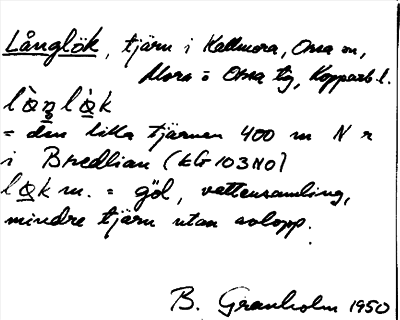 Långlök, tjärn i Kallmora, Orsa sn,
Mora o Orsa tg, Kopparb l.
= den lilla tjärnen 400 m N n
i Bredlian (kG 103 NO)
m. = göl, vattensamling,
mindre tjärn utan avlopp.
B. Granholm 1950